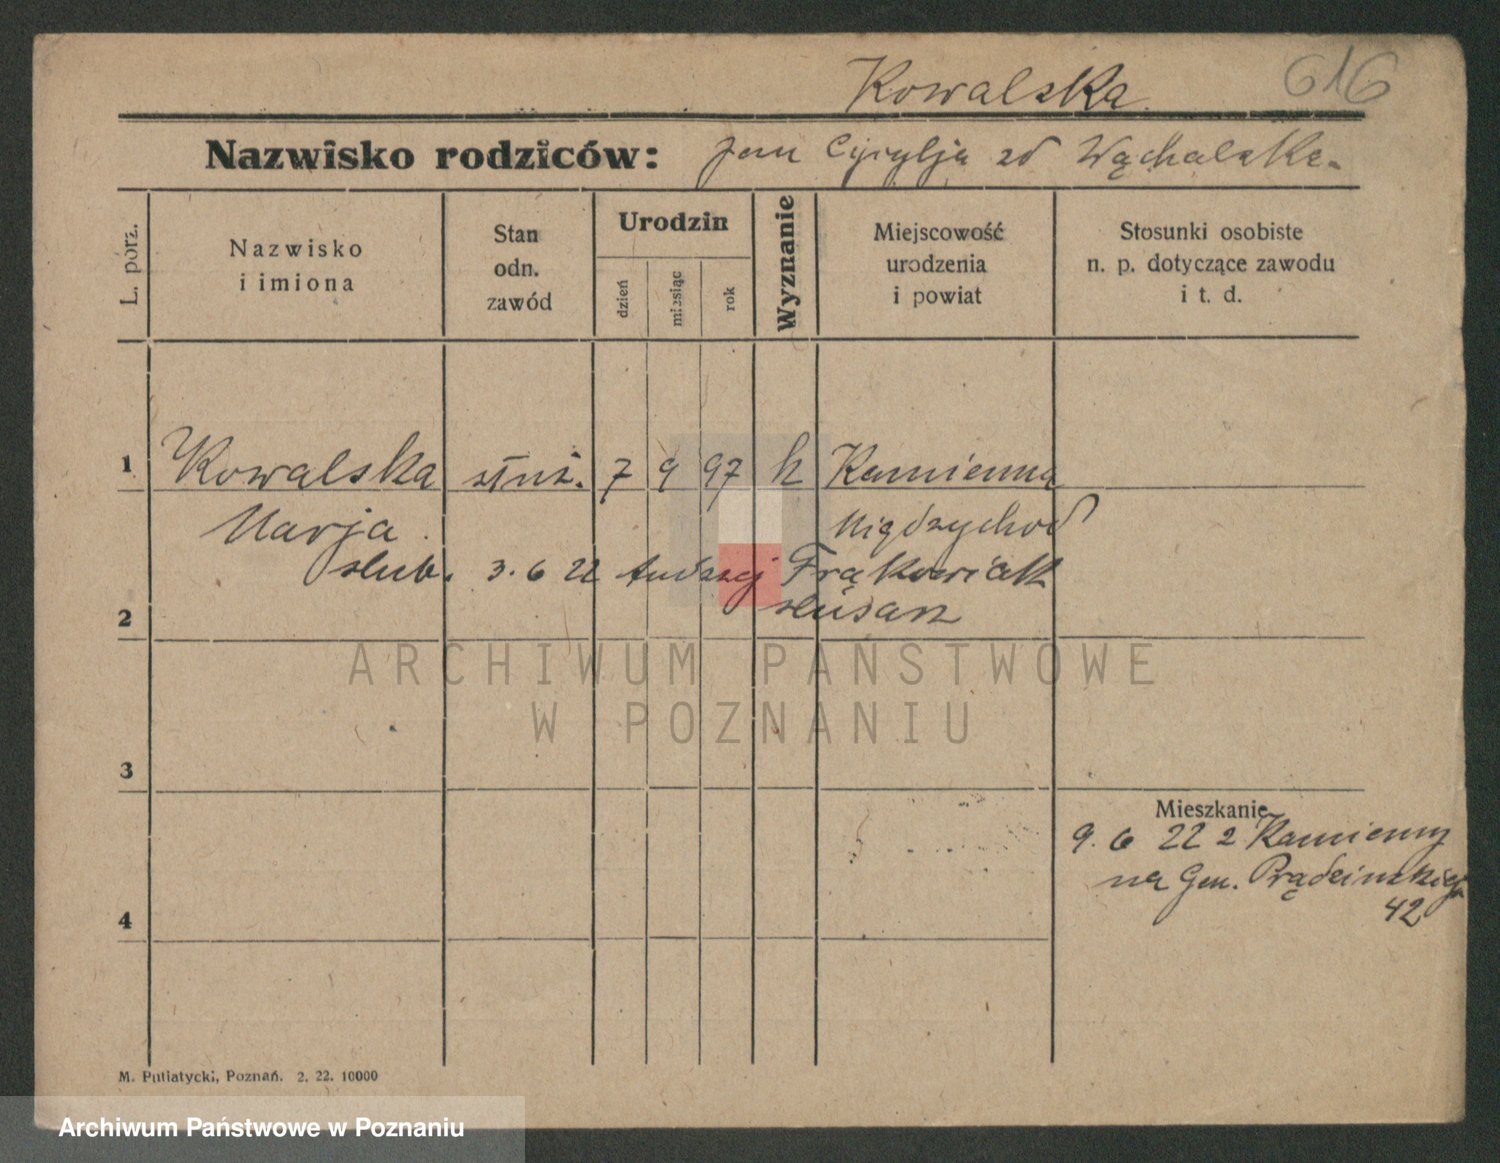 Kowalska 616
Nazwisko rodziców: Jan Cycylja zd Wąchalska
L. porz.
Nazwisko
i imiona
Stan
odn.
zawód
Urodzin
dzień
miesiąc
rok
Wyznanie
Miejscowość
urodzenia
i powiat
Stosunki osobiste
n. p. dotyczące zawodu
i t. d.
1 Kowalska służ. 7 9 97 k Kamienna
Marja Międzychod
ślub. 3. 6 22 Andrzej Frąkowiak
2 ślusarz
ARCHIWUM PAŃSTWOWE
W POZNANIU
3
Mieszkanie
9. 6 22 z Kamienny
na Gen. Prądzińskiego
42
4
M. Putiatycki, Poznań. 2. 22. 10000
Archiwum Państwowe w Poznaniu